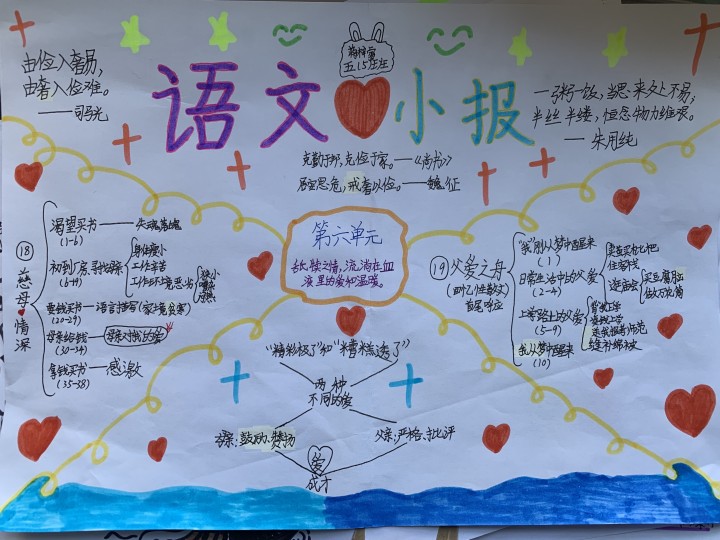 语文小报
由俭入奢易,
由奢入俭难。
——司马光
五15
一粥一饭,当思来处不易;
半丝半缕,恒念物力维艰。
——朱用纯
克勤于邦,克俭于家。——《尚书》
居安思危,戒奢以俭。——魏征
第六单元
舐犊之情,流淌在血
液里的爱和温暖。
⑱慈母情深
渴望买书——失魂落魄
(1-6)
初到厂房,寻找母亲
(6-19)
身体瘦小
工作辛苦
工作环境恶劣
要钱买书—语言描写(家境贫寒)
(20-29)
母亲给钱
(30-34)
拿钱买书——感激
(35-38)
⑲父爱之舟
(回忆性散文)
首尾呼应
"我"刚从梦中醒来
(1)
日常生活中的父爱
(2-4)
卖茧买枇杷
住客栈
逛庙会
上学路上的父爱
(5-9)
缝补棉被
我从梦中醒来
(10)
"精彩极了"和"糟糕透了"
两种
不同的爱
母亲:鼓励、赞扬
父亲:严格、批评
爱
成才